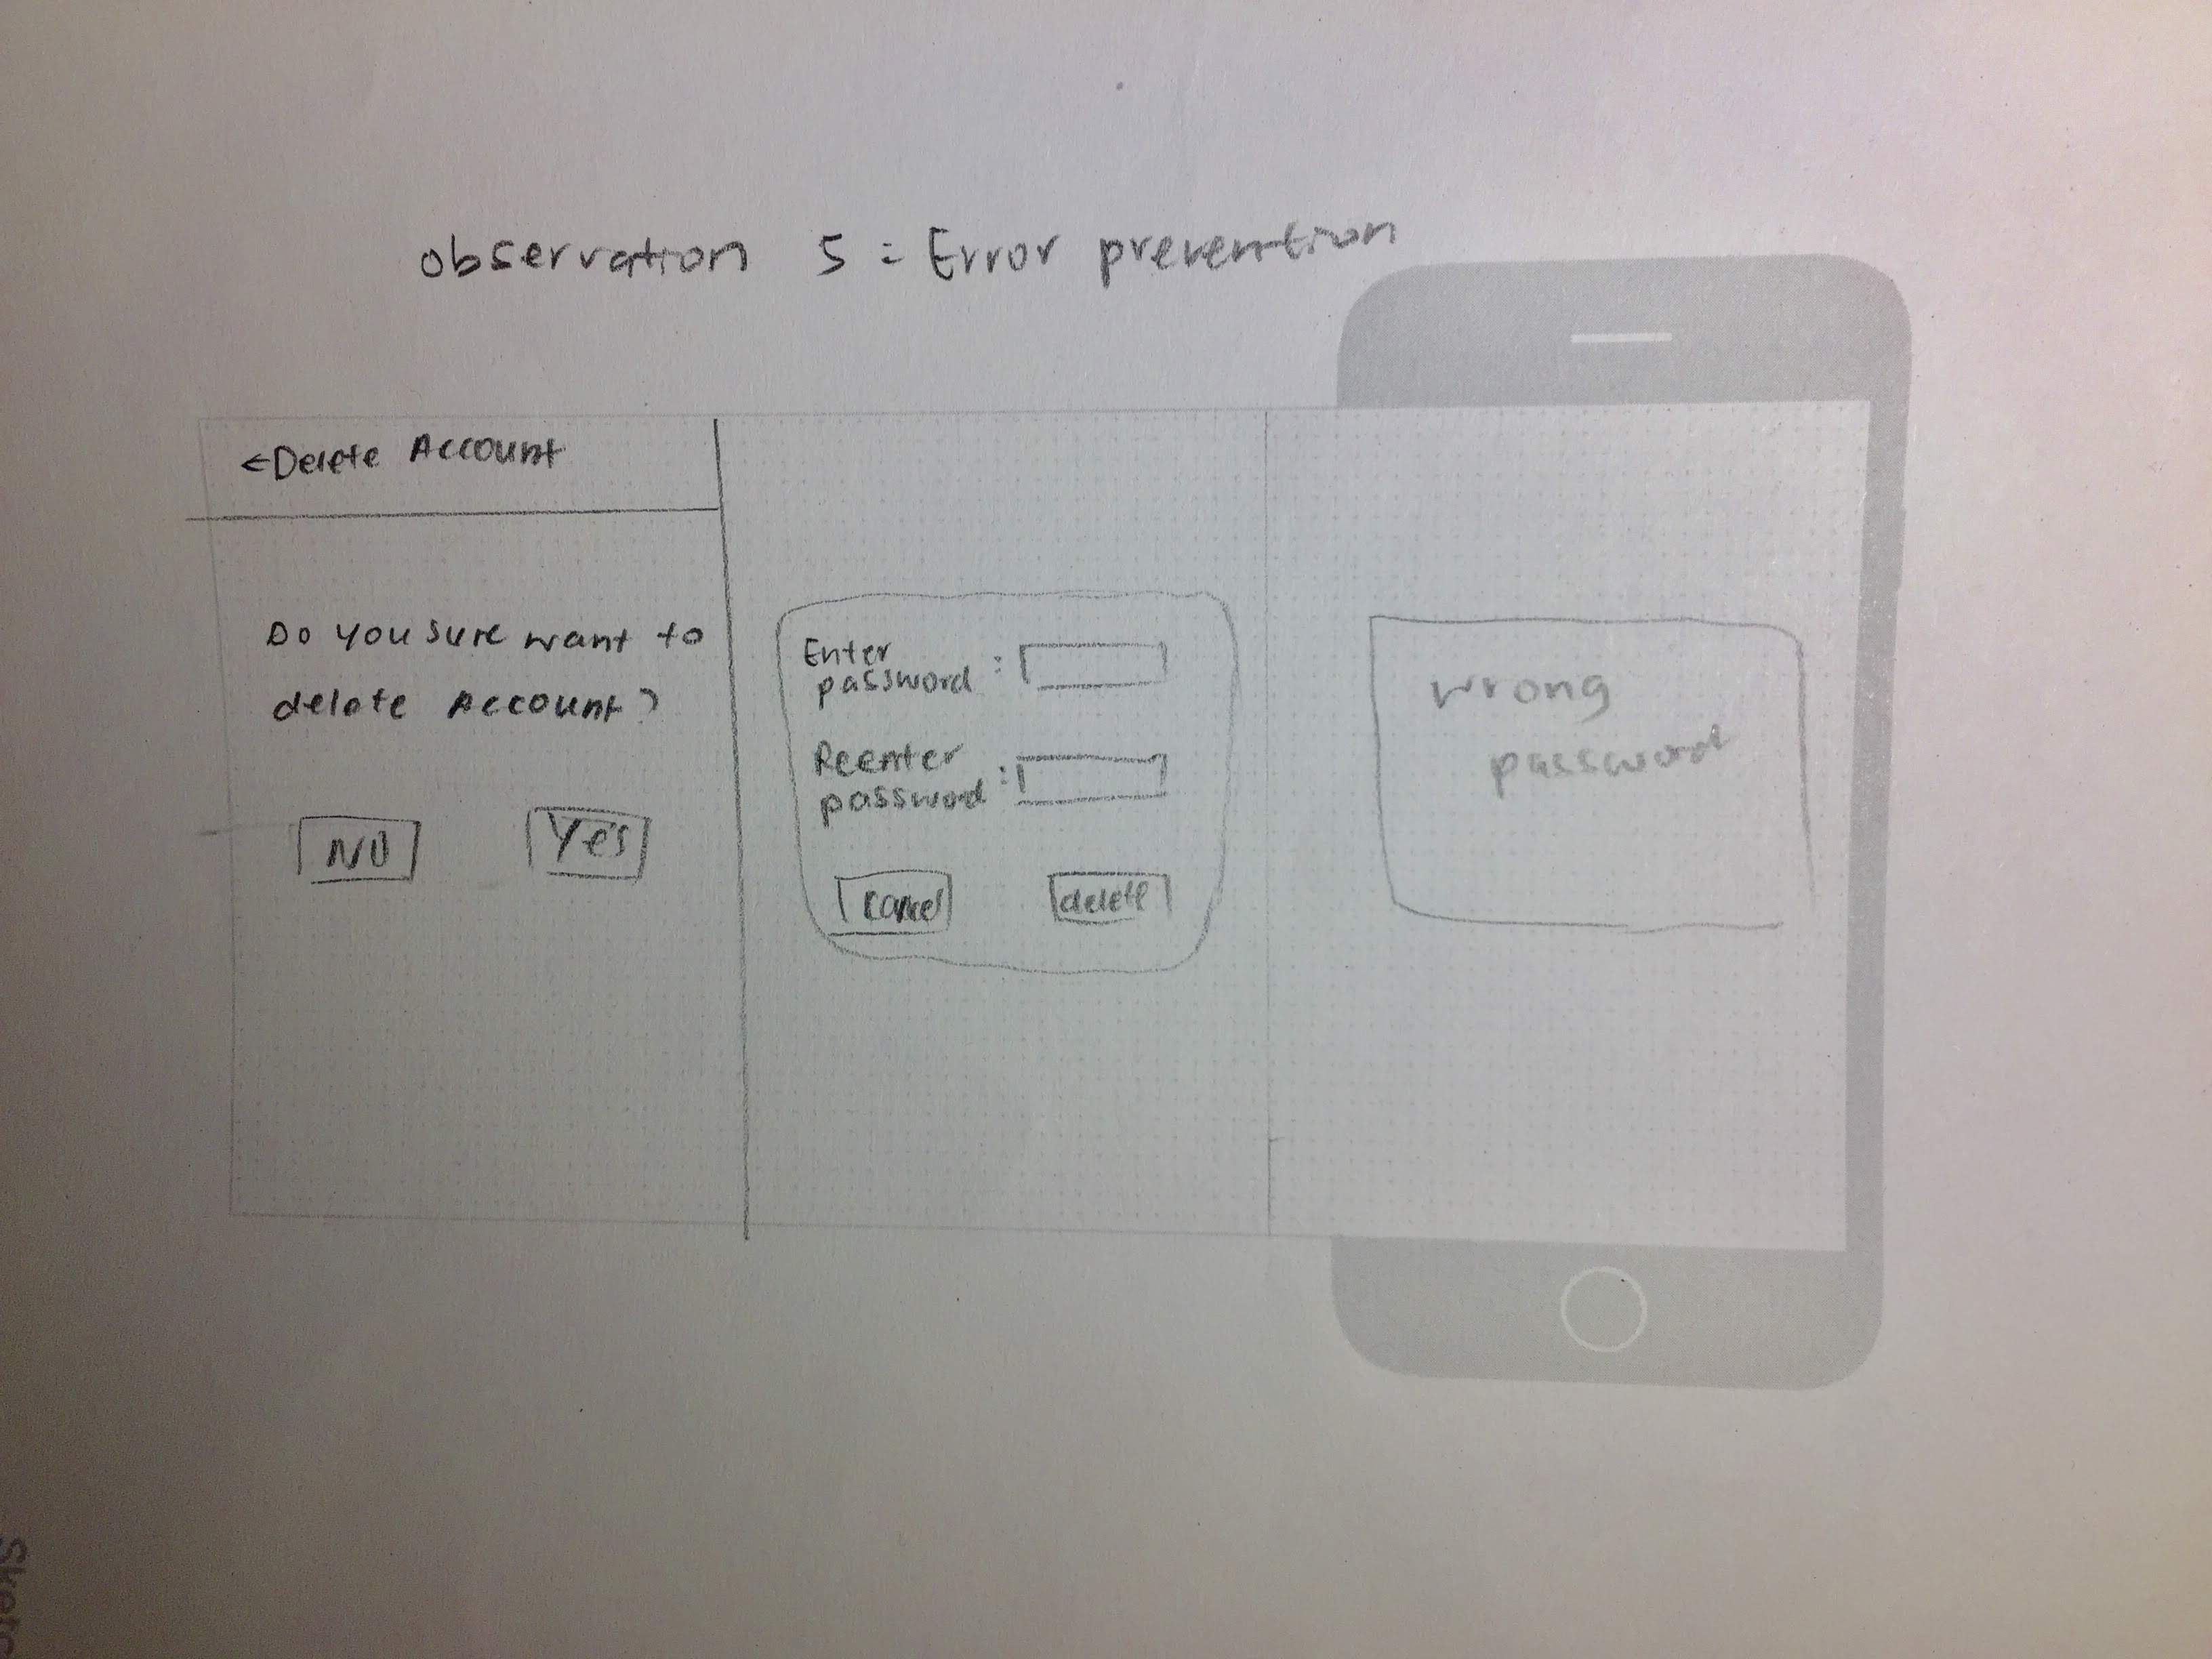 observation 5 : Error prevention
←Delete Account
Do you sure want to
delete Account?
No
Yes
Enter
password :
Reenter
password :
Cancel
delete
wrong
password